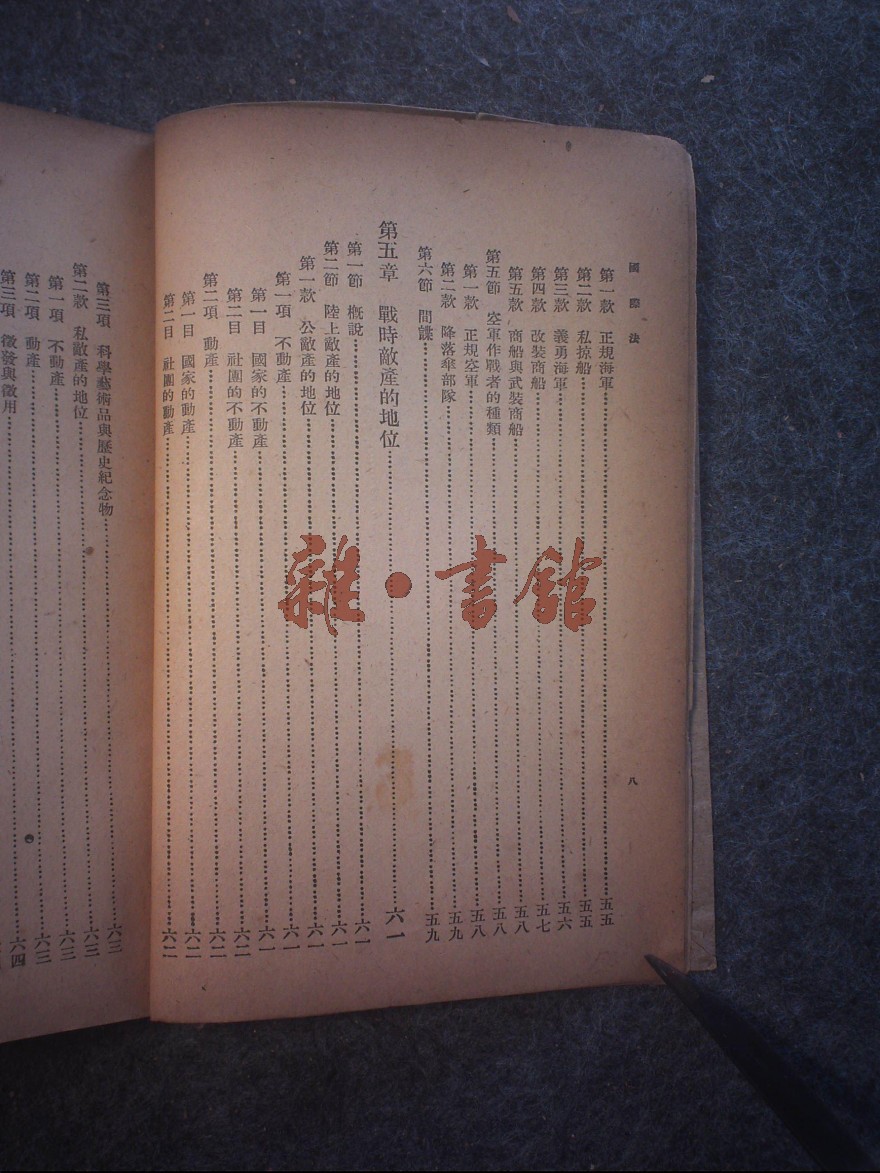 國際法
八
第一款 正規海軍……五五
第二款 私掠船……五五
第三款 義勇海軍……五六
第四款 改裝商船……五七
第五款 商船與武裝商船……五八
第五節 空軍作戰者的種類……五八
第一款 正規空軍……五八
第二款 降落傘部隊……五九
第六節 間諜……五九
第五章 戰時敵產的地位……六一
第一節 概說……六一
第二節 陸上敵產的地位……六一
第一款 公敵產的地位……六一
第一項 不動產……六一
第一目 國家的不動產……六一
第二目 社團的不動產……六二
第二項 動產……六二
第一目 國家的動產……六二
第二目 社團的動產……六二
第三項 科學藝術品與歷史紀念物……六三
第二款 私敵產的地位……六三
第一項 不動產……六三
第二項 動產……六三
第三項 徵發與徵用……六四
雜·書館